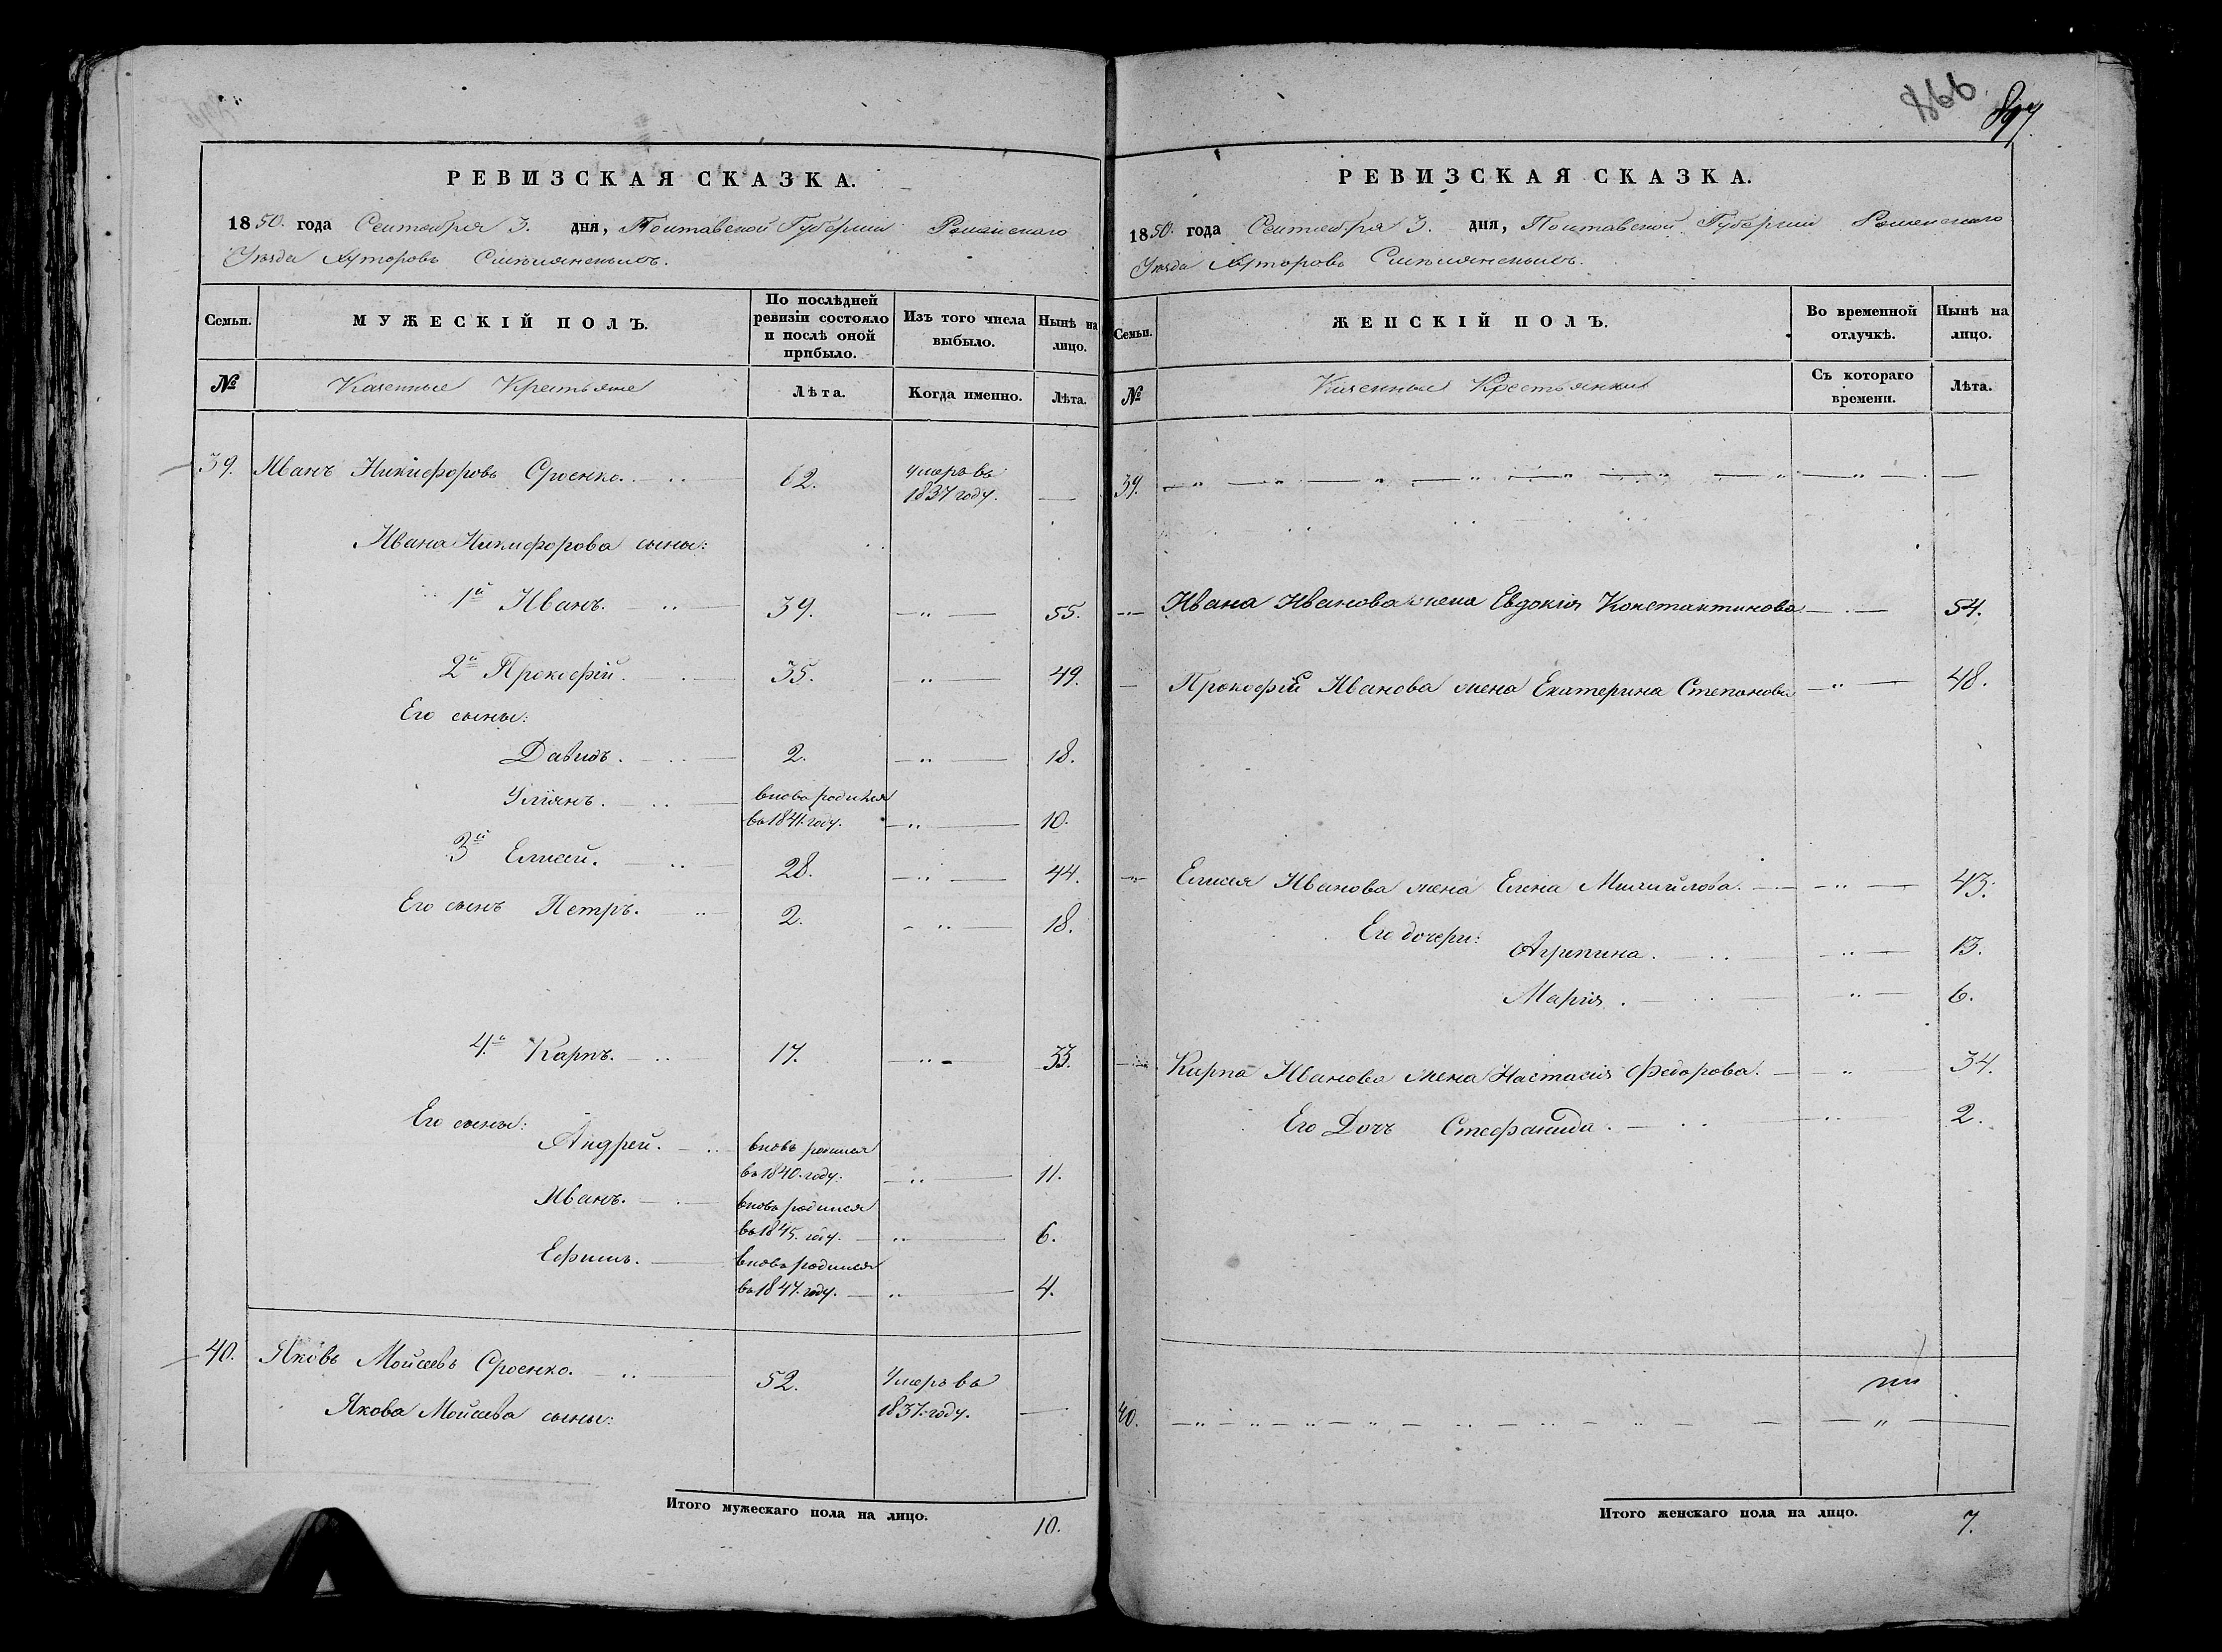 866
897
РЕВИЗСКАЯ СКАЗКА.
1850. года Сентября 3. дня, Полтавской Губернии Роменскаго
Уѣзда Хуторовъ
Семьи.
МУЖЕСКІЙ ПОЛЪ.
По послѣдней ревизіи состояло и послѣ оной прибыло.
Изъ того числа выбыло.
Нынѣ на лицо.
№
Казенные Крестьяне
Лѣта.
Когда именно.
Лѣта.
39. Иванъ Никифоровъ Сроенко. 62. умеръ въ
1837 году.
Ивана Никифорова сыны:
1й Иванъ. 39. — " — 55.
2й Прокофій. 35. — " — 49.
Его сыны:
Давидъ. 2. — " — 18.
Уліянъ. вновь родился
въ 1841. году. — " — 10.
3й Елисей. 28. — " — 44.
Его сынъ Петръ. 2. — " — 18.
4й Карпъ. 17. — " — 33.
Его сыны:
Андрей. вновь родился
въ 1840. году. — " — 11.
Иванъ. вновь родился
въ 1845. году. — " — 6.
Ефимъ. вновь родился
въ 1847. году. — " — 4.
40. Яковъ Мойсеевъ Сроенко. 52. Умеръ въ
1837. году. —
Якова Мойсеева сыны:
Итого мужескаго пола на лицо. 10.
РЕВИЗСКАЯ СКАЗКА.
1850. года Сентября 3. дня, Полтавской Губерніи Роменскаго
Уѣзда Хуторовъ
Семьи.
ЖЕНСКІЙ ПОЛЪ.
Во временной отлучкѣ.
Нынѣ на лицо.
№
Казенныя Крестьянки
Съ котораго времени.
Лѣта.
39. — " — " — " — " — " — " — " — " —
Ивана Иванова жена Евдокія Константинова — " — 54.
Прокофія Иванова жена Екатерина Степанова — " — 48.
Елисея Иванова жена Елена Михайлова. — " — 43.
Его дочери:
Агрипина. — " — 13.
Марія. — " — 6.
Карпа Иванова жена Настасія Федорова. — " — 34.
Его Дочь Стефанида. — " — 2.
40. — " — " — " — " — " — " — " — " —
Итого женскаго пола на лицо. 7.